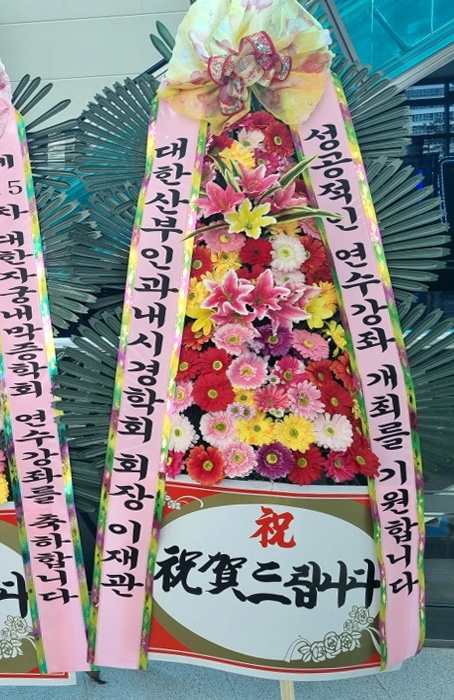 제5차 대한자궁내막증학회 연수강좌를 축하합니다
대한산부인과내시경학회 회장 이재관
성공적인 연수강좌 개최를 기원합니다
祝
祝賀드립니다